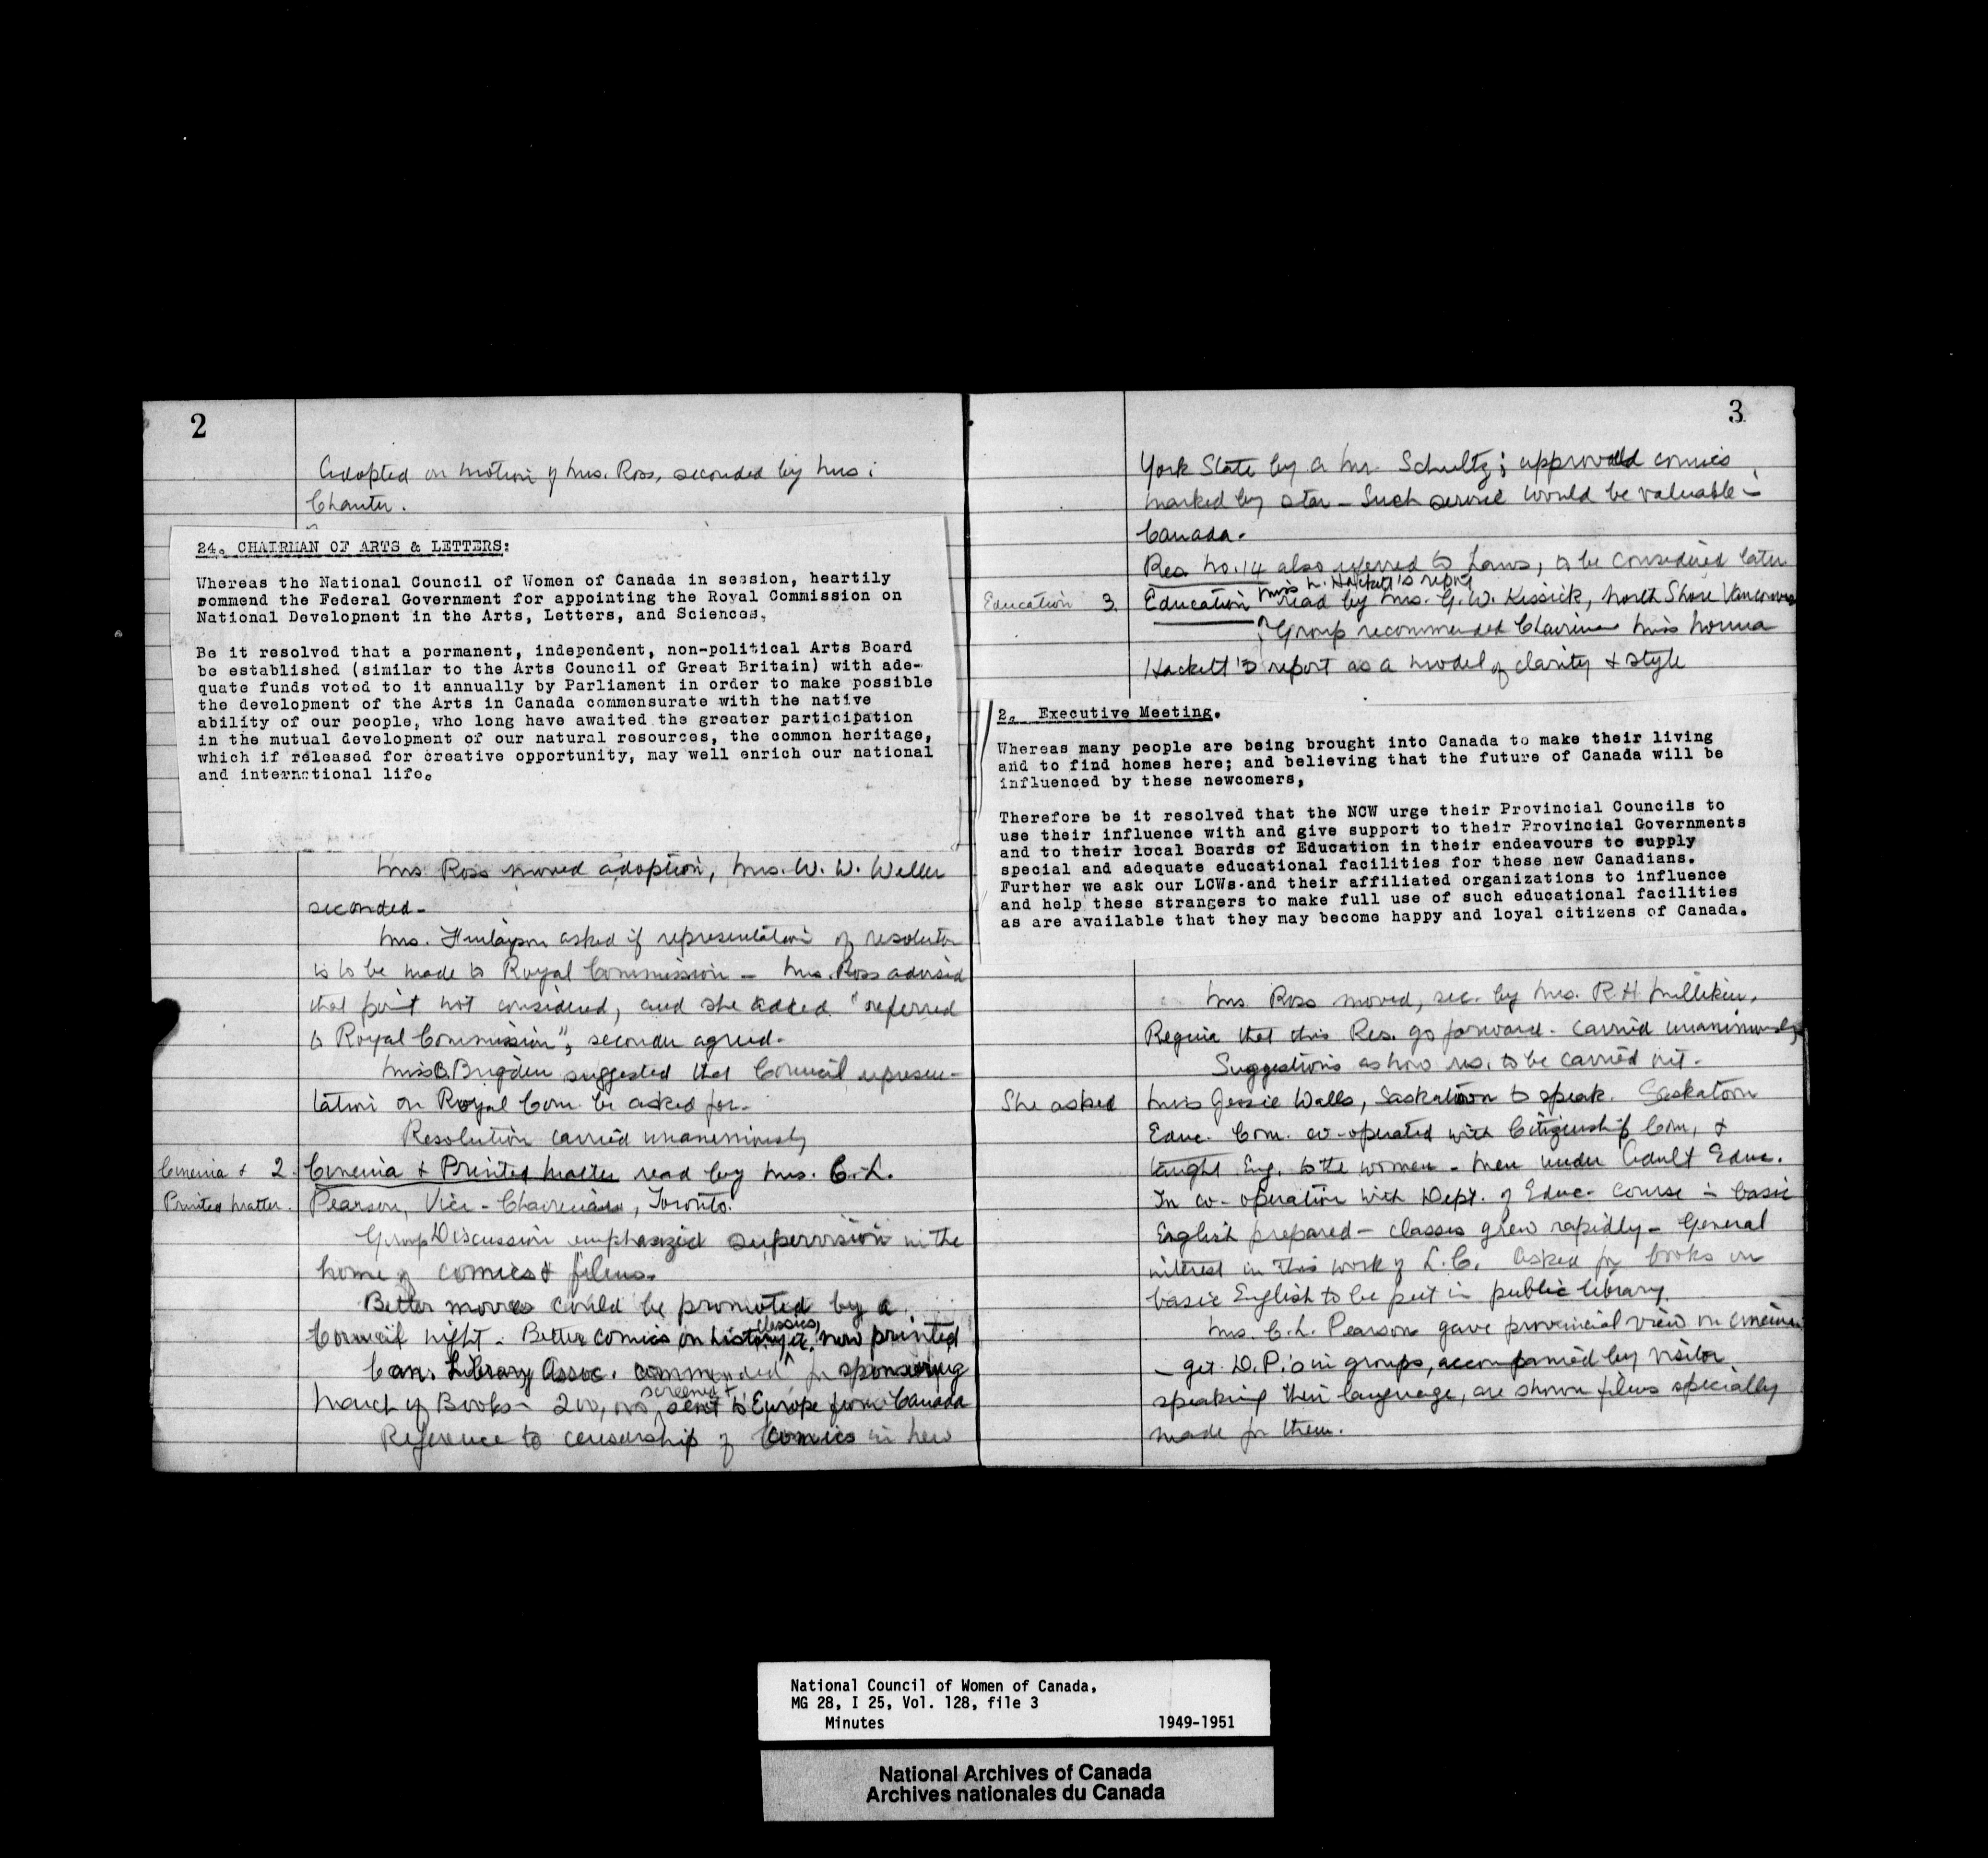 2
Adopted on motion of Mrs. Ross, seconded by Mrs.
Chanter.
24. CHAIRMAN OF ARTS & LETTERS:
Whereas the National Council of Women of Canada in session, heartily
commend the Federal Government for appointing the Royal Commission on
National Development in the Arts, Letters, and Sciences,
Be it resolved that a permanent, independent, non-political Arts Board
be established (similar to the Arts Council of Great Britain) with ade-
quate funds voted to it annually by Parliament in order to make possible
the development of the Arts in Canada commensurate with the native
ability of our people, who long have awaited the greater participation
in the mutual development of our natural resources, the common heritage,
which if released for creative opportunity, may well enrich our national
and international life.
Mrs. Ross moved adoption, Mrs. W. W. Weller
seconded-
Mrs. Finlayson asked if representation of resolution
is to be made to Royal Commission - Mrs. Ross advised
that point not considered, and she added "referred
to Royal Commission", seconder agreed-
Miss B. Brigden suggested that Council represen-
tation on Royal Com. be asked for-
Resolution carried unanimously
Cinema & 2. Cinema & Printed Matter read by Mrs. C. L.
Printed Matter. Pearson, Vice-Chairman, Toronto.
Group Discussion emphasized supervision in the
home of comics & films.
Better movies could be promoted by a
Council night - Better comics on history etc. classics, now printed
Can. Library Assoc. commended for sponsoring
March of Books - 200,000 screened & sent to Europe from Canada
Reference to censorship of Comics in New
3
York State by a Mr. Schultz; approved comics
marked by star - Such service would be valuable in
Canada.
Res. No. 14 also referred to Laws, to be considered later
Miss N. Hackett's report
Education 3. Education read by Mrs. G. W. Kissick, North Shore Vancouver
Group recommended Chairman Miss Norma
Hackett's report as a model of clarity & style
2. Executive Meeting.
Whereas many people are being brought into Canada to make their living
and to find homes here; and believing that the future of Canada will be
influenced by these newcomers,
Therefore be it resolved that the NCW urge their Provincial Councils to
use their influence with and give support to their Provincial Governments
and to their local Boards of Education in their endeavours to supply
special and adequate educational facilities for these new Canadians.
Further we ask our LCWs.and their affiliated organizations to influence
and help these strangers to make full use of such educational facilities
as are available that they may become happy and loyal citizens of Canada.
Mrs. Ross moved, sec. by Mrs. R. H. Milliken,
Regina that this Res. go forward - Carried unanimously
Suggestions as how res. to be carried out -
She asked Miss Jessie Walls, Saskatoon to speak. Saskatoon
Educ. Com. co-operated with Citizenship Com, &
taught Eng. to the women - men under Adult Educ.
In co-operation with Dept. of Educ- course in basic
English prepared - classes grew rapidly - General
interest in this work of L.C. Asked for books in
basic English to be put in public library.
Mrs. C. L. Pearson gave provincial view on cinema
- get D.P.'s in groups, accompanied by visitor
speaking their language, are shown films specially
made for them.
National Council of Women of Canada,
MG 28, I 25, Vol. 128, file 3
Minutes 1949-1951
National Archives of Canada
Archives nationales du Canada